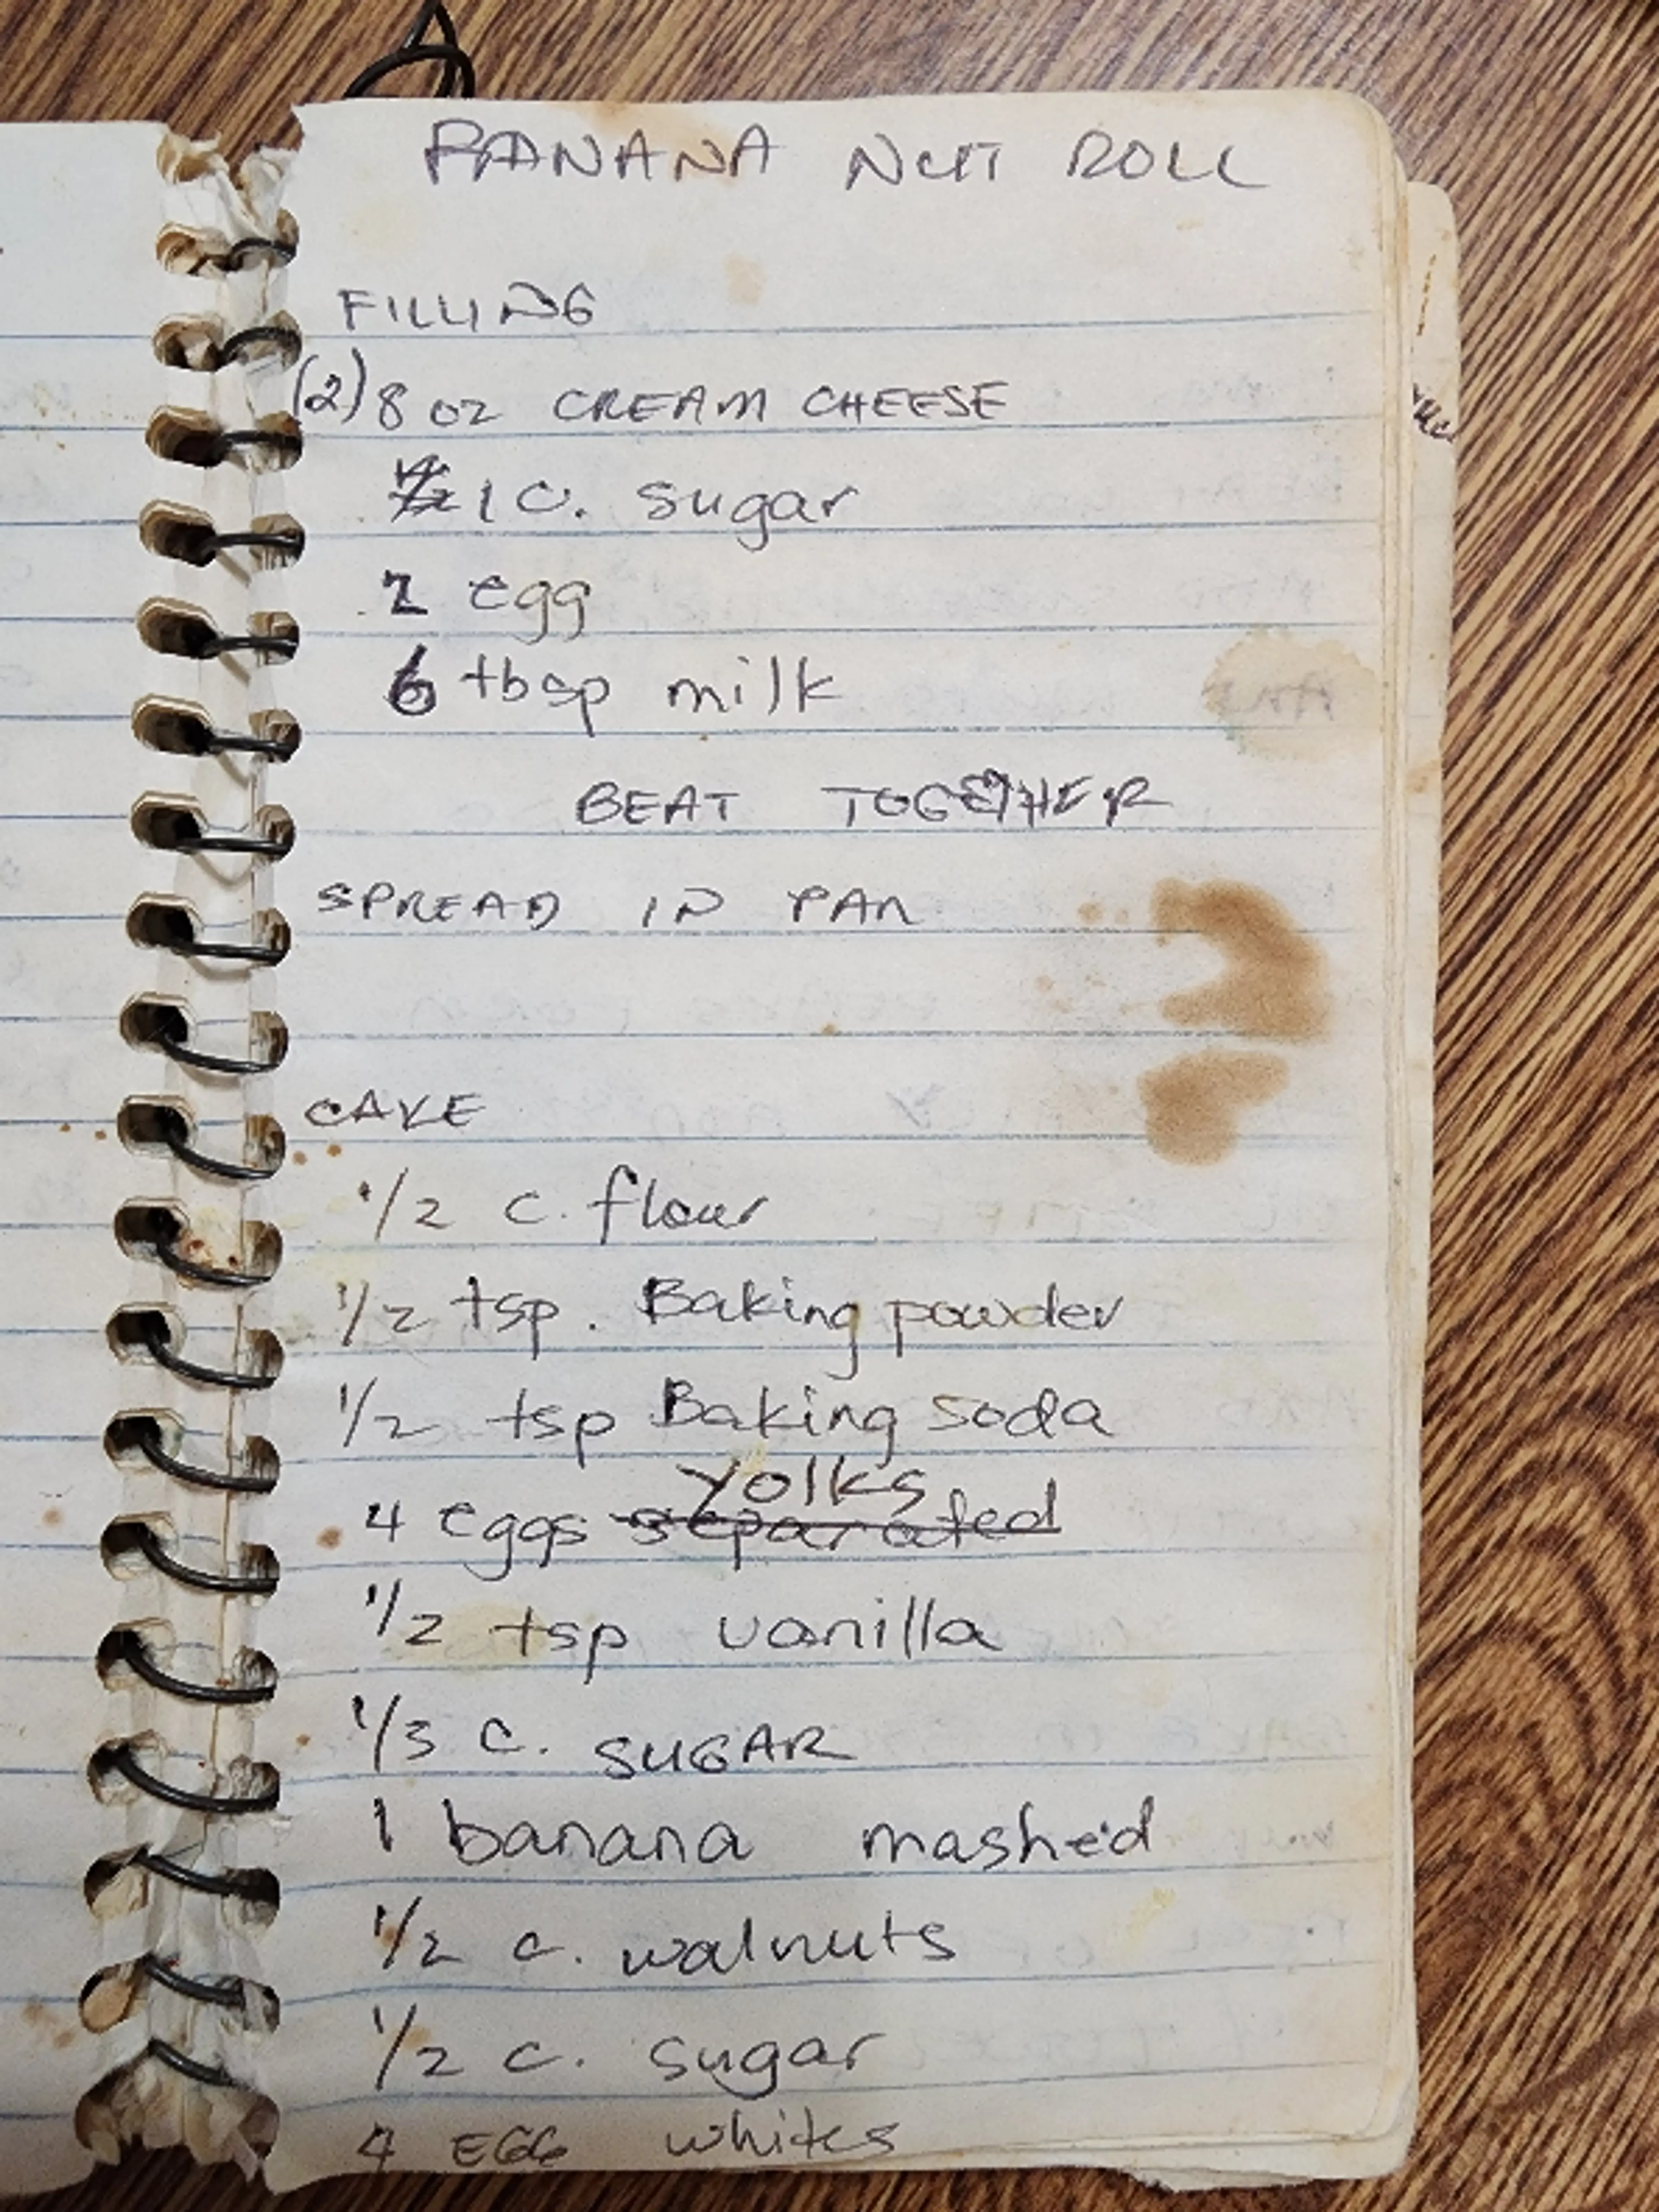 BANANA NUT ROLL
FILLING
(2) 8 oz CREAM CHEESE
1 C. sugar
2 egg
6 tbsp milk
BEAT TOGETHER
SPREAD IN PAN
CAKE
1/2 c. flour
1/2 tsp. Baking powder
1/2 tsp Baking soda
yolks
4 eggs separated
1/2 tsp vanilla
1/3 C. SUGAR
1 banana mashed
1/2 c. walnuts
1/2 c. sugar
4 EGG whites